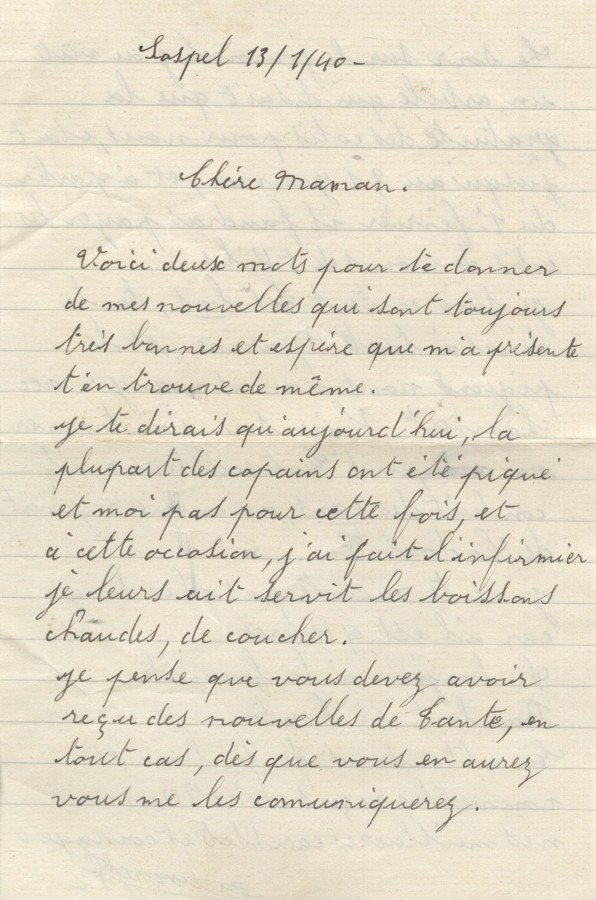 Sospel 13/1/40-
Chére Maman.
Voici deux mots pour te donner
de mes nouvelles qui sont toujours
très bonnes et espère que m'a présente
t'en trouve de même.
je te dirais qu'aujourd'hui, la
plupart des copains ont été piqué
et moi pas pour cette fois, et
à cette occasion, j'ai fait l'infirmier
je leurs ait servit les boissons
chaudes, de coucher.
je pense que vous devez avoir
reçu des nouvelles de Tante, en
tout cas, dès que vous en aurez
vous me les comuniquerez.